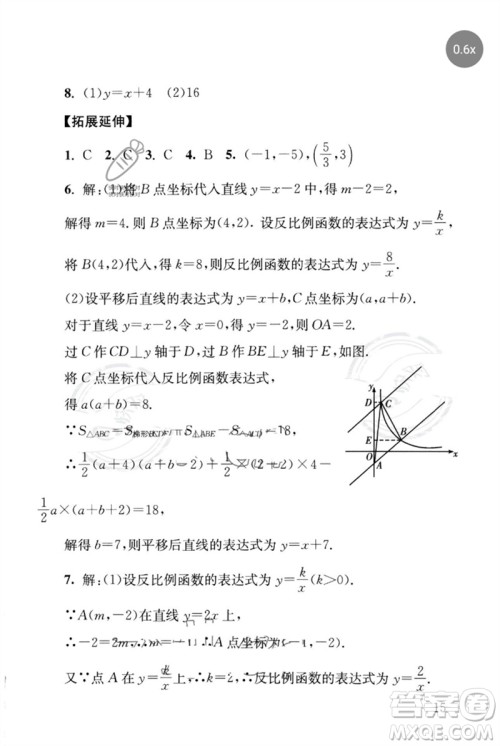 0.6x
8. (1)y=x+4 (2)16
【拓展延伸】
1. C 2. C 3. C 4. B 5. (-1,-5),(5/3,3)
6. 解:(1)将B点坐标代入直线y=x-2中,得m-2=2,
解得m=4.则B点坐标为(4,2).设反比例函数的表达式为y=k/x.
将B(4,2)代入,得k=8,则反比例函数的表达式为y=8/x.
(2)设平移后直线的表达式为y=x+b.C点坐标为(a,a+b).
对于直线y=x-2,令x=0得y=-2,则OA=2.
过C作CD⊥y轴于D,过B作BE⊥y轴于E,如图.
将C点坐标代入反比例函数的表达式,
得a(a+b)=8.
∵S△ABC=S梯形BCDE+S△ABE-S△ACD=18,
∴1/2(a+4)(a+b-2)+1/2×(2+2)×4-
1/2a×(a+b+2)=18,
解得b=7,则平移后直线的表达式为y=x+7.
7. 解:(1)设反比例函数的表达式为y=k/x(k>0).
∵A(m,-2)在直线y=2x上,
∴-2=2m,∴m=-1,∴A(-1,-2).
又∵点A在y=k/x上,∴k=2,∴反比例函数的表达式为y=2/x.
y
D
C
E
B
O
A
x
答案圈